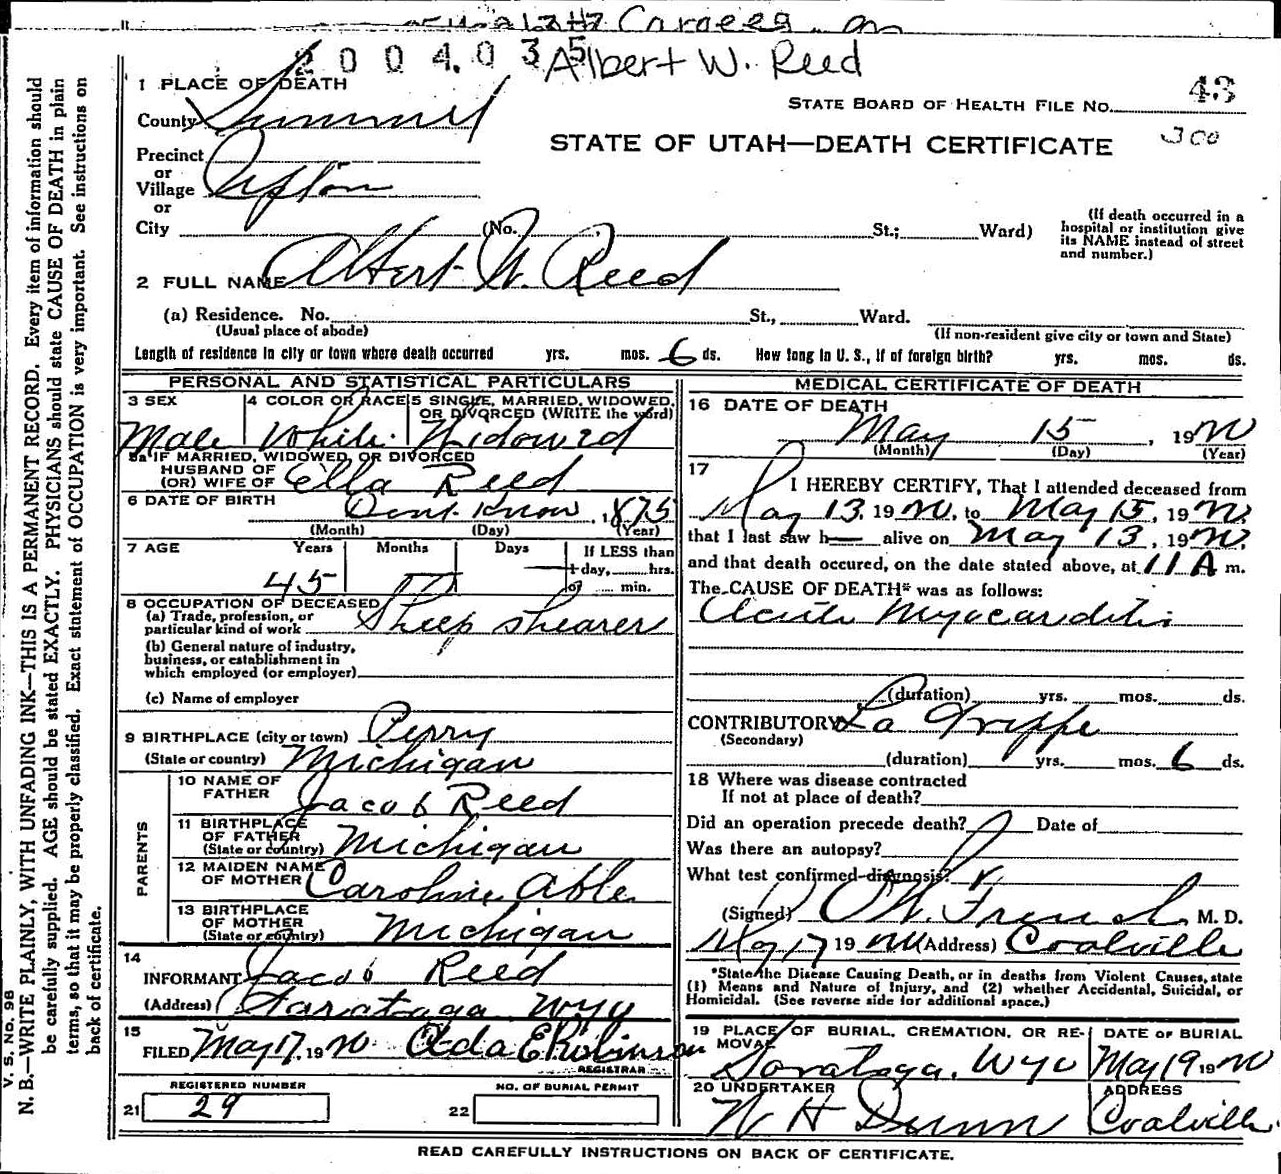 2004035 Albert W. Reed
1 PLACE OF DEATH
STATE BOARD OF HEALTH FILE NO. 43
County Summit
STATE OF UTAH—DEATH CERTIFICATE
300
Precinct
or
Village Upton
or
City (No. St.; Ward)
(If death occurred in a hospital or institution give its NAME instead of street and number.)
2 FULL NAME Albert W. Reed
(a) Residence. No. St., Ward.
(Usual place of abode)
(If non-resident give city or town and State)
Length of residence in city or town where death occurred yrs. mos. 6 ds. How long in U. S., if of foreign birth? yrs. mos. ds.
PERSONAL AND STATISTICAL PARTICULARS
3 SEX
Male
4 COLOR OR RACE
White
5 SINGLE, MARRIED, WIDOWED, OR DIVORCED (WRITE the word)
Widowed
5a IF MARRIED, WIDOWED, OR DIVORCED
HUSBAND OF
(OR) WIFE OF Ella Reed
6 DATE OF BIRTH Dont Know, 1875
(Month) (Day) (Year)
7 AGE Years Months Days If LESS than
1 day, hrs.
or min.
45 — —
8 OCCUPATION OF DECEASED
(a) Trade, profession, or
particular kind of work Sheep shearer
(b) General nature of industry,
business, or establishment in
which employed (or employer)
(c) Name of employer
9 BIRTHPLACE (city or town) Perry
(State or country) Michigan
PARENTS
10 NAME OF FATHER Jacob Reed
11 BIRTHPLACE OF FATHER
(State or country) Michigan
12 MAIDEN NAME OF MOTHER Caroline Able
13 BIRTHPLACE OF MOTHER
(State or country) Michigan
14
INFORMANT Jacob Reed
(Address) Saratoga Wyo
15
FILED May 17, 1920 Ada E Robinson
REGISTRAR
REGISTERED NUMBER
21 29
NO. OF BURIAL PERMIT
22
MEDICAL CERTIFICATE OF DEATH
16 DATE OF DEATH
May 15, 1920
(Month) (Day) (Year)
17
I HEREBY CERTIFY, That I attended deceased from
May 13, 1920, to May 15, 1920,
that I last saw h— alive on May 13, 1920,
and that death occured, on the date stated above, at 11 A m.
The CAUSE OF DEATH* was as follows:
Acute Myocarditis
(duration) yrs. mos. ds.
CONTRIBUTORY La Grippe
(Secondary)
(duration) yrs. mos. 6 ds.
18 Where was disease contracted
If not at place of death?
Did an operation precede death? Date of
Was there an autopsy?
What test confirmed diagnosis?
(Signed) French M. D.
May 17 1920 (Address) Coalville
*State the Disease Causing Death, or in deaths from Violent Causes, state
(1) Means and Nature of Injury, and (2) whether Accidental, Suicidal, or
Homicidal. (See reverse side for additional space.)
19 PLACE OF BURIAL, CREMATION, OR REMOVAL
Saratoga, Wyo
DATE OF BURIAL
May 19 1920
20 UNDERTAKER
W H Dunn
ADDRESS
Coalville
READ CAREFULLY INSTRUCTIONS ON BACK OF CERTIFICATE.
V. S. No. 98
N. B.—WRITE PLAINLY, WITH UNFADING INK—THIS IS A PERMANENT RECORD. Every item of information should
be carefully supplied. AGE should be stated EXACTLY. PHYSICIANS should state CAUSE OF DEATH in plain
terms, so that it may be properly classified. Exact statement of OCCUPATION is very important. See instructions on
back of certificate.